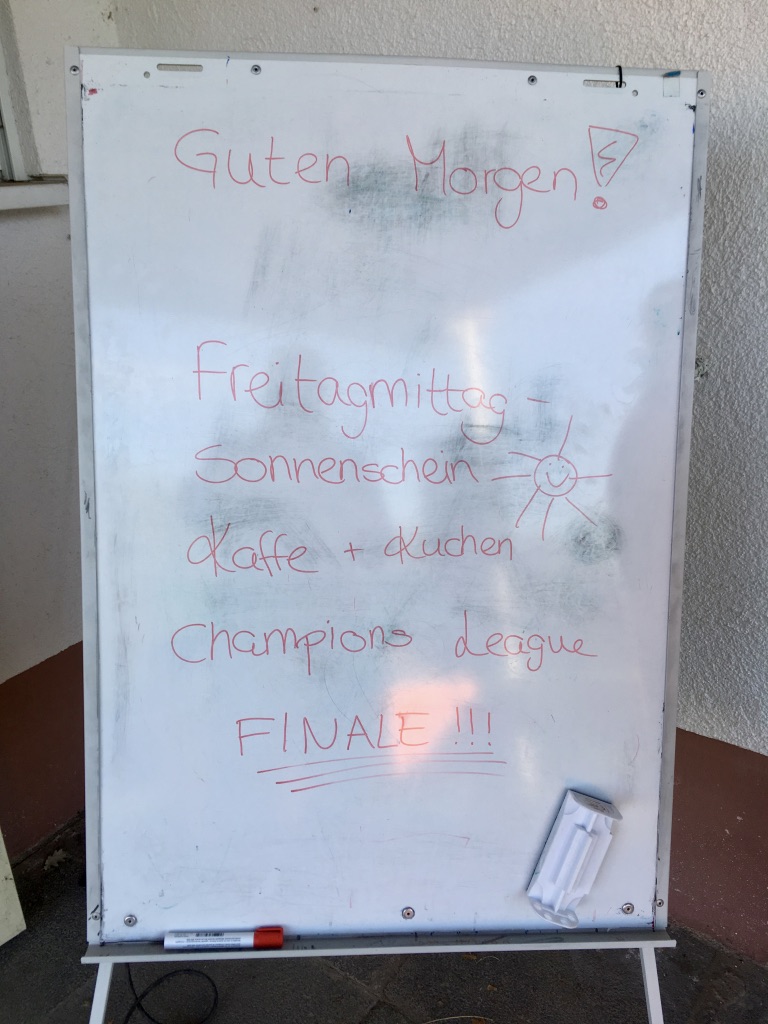 Guten Morgen!
Freitagmittag -
Sonnenschein
Kaffe + Kuchen
Champions League
FINALE !!!